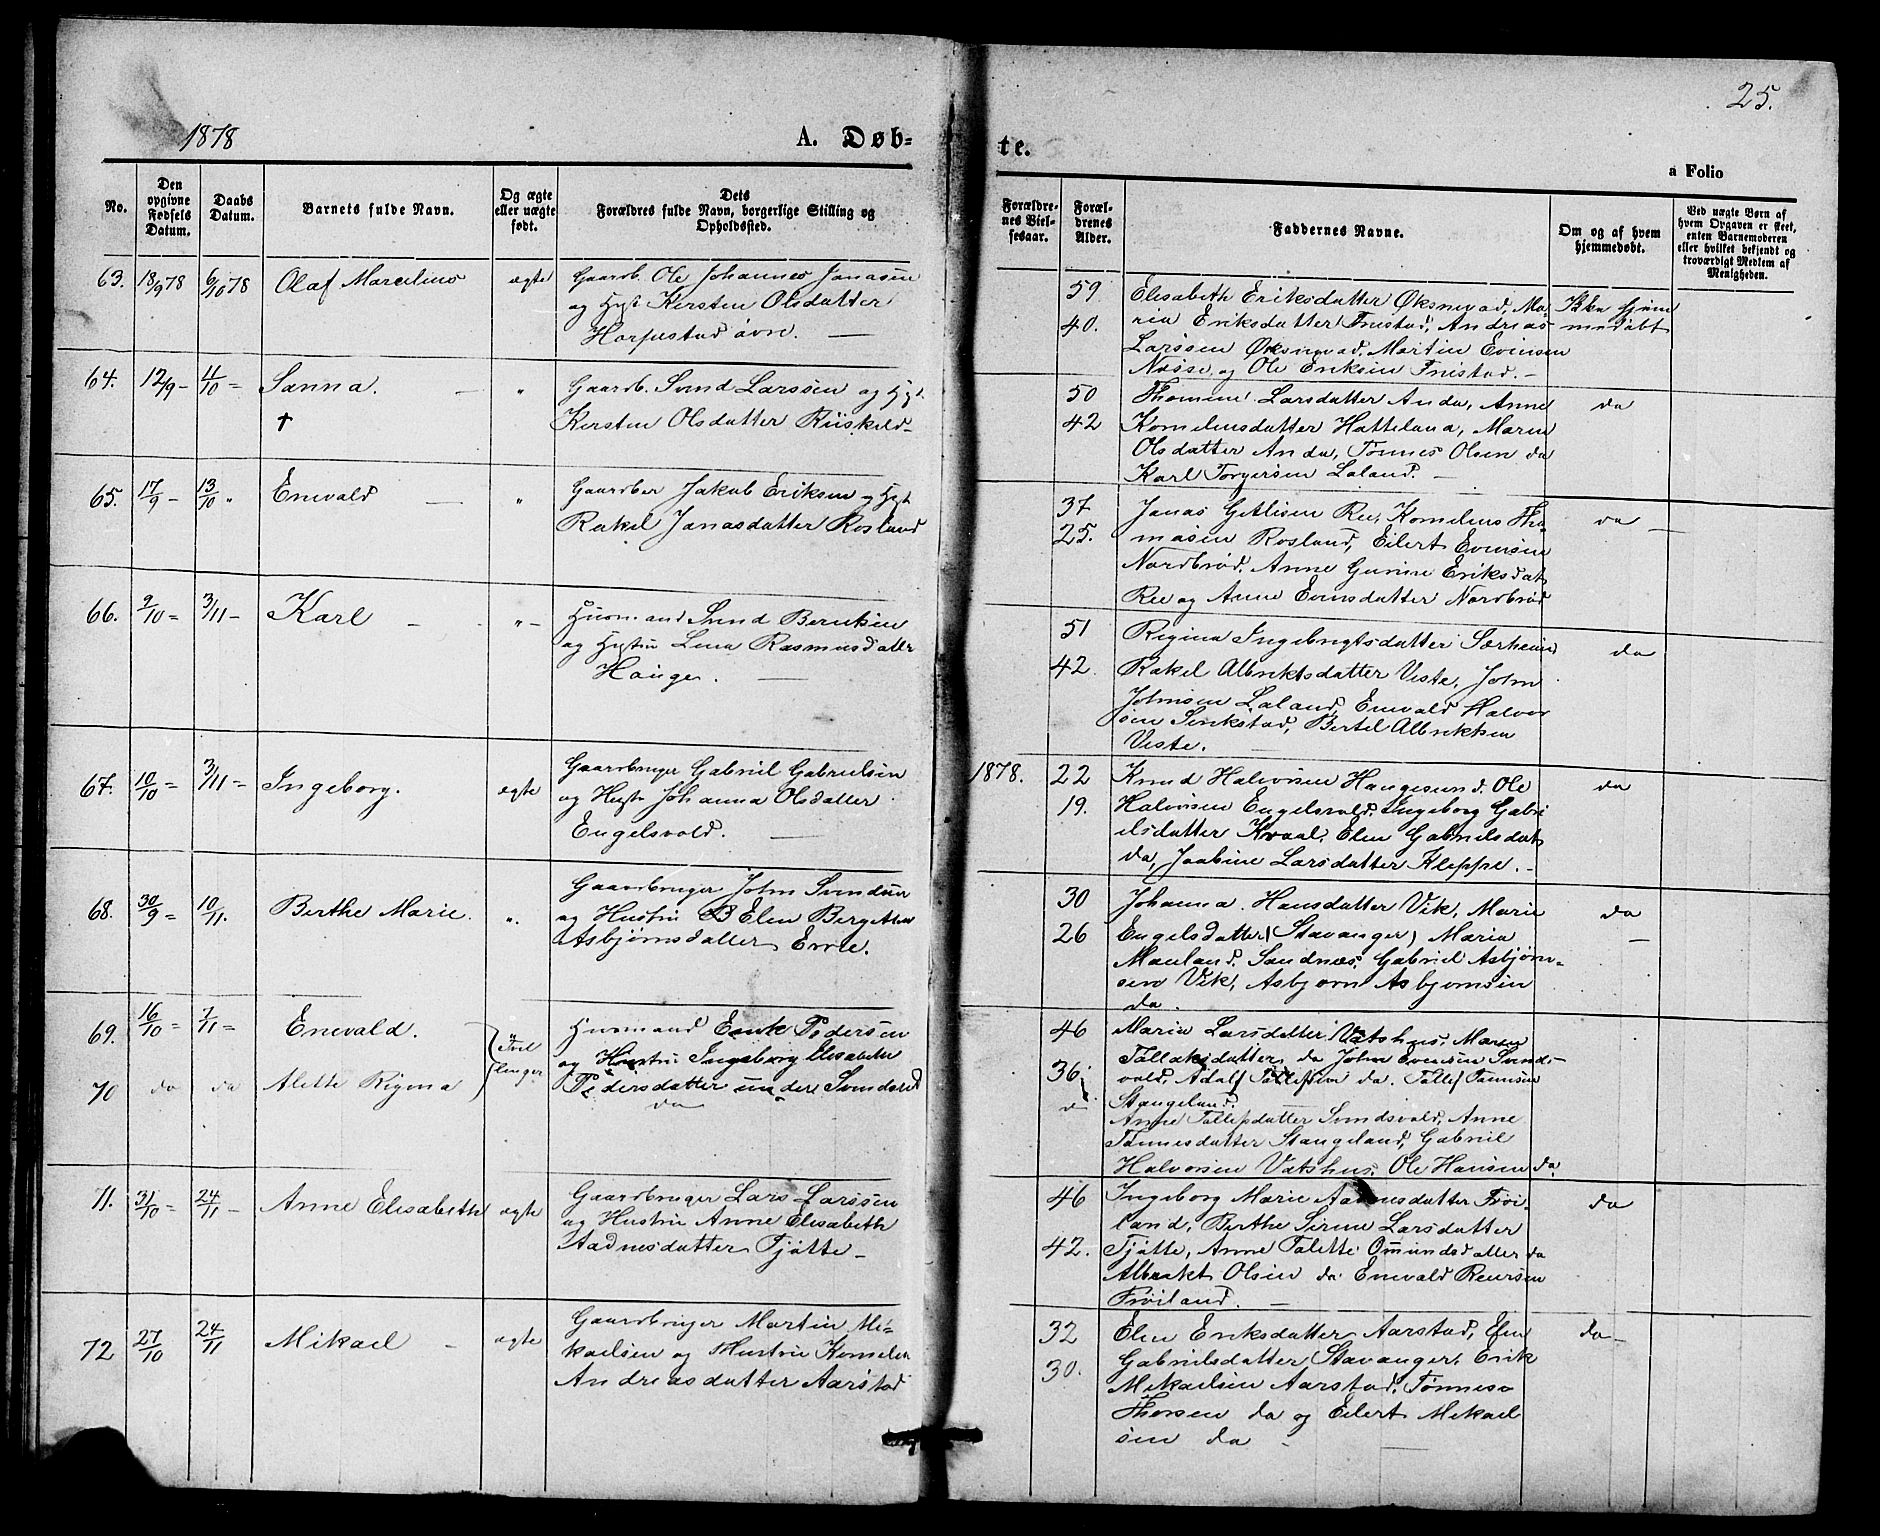 25.
1878
A. Døb-
te.
a Folio
No.
Den
opgivne
Fødsels
Datum.
Daabs
Datum.
Barnets fulde Navn.
Og ægte
eller uægte
født.
Dets
Forældres fulde Navn, borgerlige Stilling og
Opholdssted.
Forældre-
nes Viel-
sesaar.
Foræl-
drenes
Alder.
Faddernes Navne.
Om og af hvem
hjemmedøbt.
Ved uægte Børn af
hvem Opgaven er skeet,
enten Barnemoderen
eller hvilket bekjendt og
troværdigt Medlem af
Menigheden.
63. 18/9 78 6/10 78 Olaf Marcelius ægte
Gaardb. Ole Johannes Janasen
og Hust Kersten Olsdatter
Horpestad øvre. —
59
40.
Elisabeth Eriksdatter Øksnevad, Ma-
ria Eriksdatter Friestad, Andreas
Larssen Øksnevad, Martin Evensen
Næsse, og Ole Eriksen Friestad. —
Ikke hjem-
medøbt
64. 12/9 - 11/10 = Sanna. — "
†
Gaardb. Svend Larssen og Hust
Kersten Olsdatter Riiskeld-
50
42
Thomine Larsdatter Anda, Anne
Kornelensdatter Hatteland, Maren
Olsdatter Anda, Tønnes Olsen da
Karl Torgersen Laland. —
da
65. 17/9 - 13/10 " Enevald — "
Gaardber Jakob Eriksen og Hust
Rakel Janasdatter Rosland
37
25.
Janas Getlisen Ree, Kornelius Tho-
masen Rosland, Eilert Evensen
Nordbrød, Anne Gurine Eriksdat
Ree og Anne Evensdatter Nordbrød
da —
66. 9/10 = 3/11 - Karl — " -
Huusmand Svend Berntsen
og Hustru Lena Rasmusdatter
Hauge. —
51
42.
Regina Ingebrigtsdatter Særheim
Rakel Albrektsdatter Veste, John
Johnsen Laland, Enevald Halvor
sen Serikstad, Bertel Albriktsen
Veste.
da
67. 10/10 = 3/11 = Ingeborg. ægte
Gaardbruger Gabriel Gabrielsen
og Hustr Johanna Olsdatter
Engelsvold. —
1878.
22
19.
Knud Halvorsen Haugesund, Ole
Halvorsen Engelsvold, Ingeborg Gabri
elsdatter Kvaal, Elen Gabrielsdat
da, Jaabine Larsdatter Kleppe. -
da
68. 30/9 = 10/11. Berthe Marie. "
Gaardbruger John Svendsen
og Hustru Elen Bergitha
Asbjørnsdatter Erve.
30
26
Johanna Hansdatter Vik, Marie
Engelsdatter (Stavanger) Maria
Mauland, Sandnæs, Gabriel Asbjørn-
sen Vik, Asbjørn Asbjørnsen
da.
da
—
69. 16/10 = 7/11 = Enevald.
70 da da Alette Regina
Tvil
linger
Huusmand Erik Pedersen
og Hustru Ingeborg Elisabeth
Pedersdatter under Svendsvold
da
46
36.
da
Maria Larsdatter Vatshus, Maren
Tallaksdatter da John Evensen Svends-
vold, Adolf Tollefsen da. Tollef Tønnesen
Stangeland.
Anne Tollefsdatter Svendsvold, Anne
Tønnesdatter Stangeland, Gabriel
Halvorsen Vatshus, Ole Hansen da.
71. 31/10 = 24/11 - Anne Elisabeth ægte
Gaardbruger Lars Larssen
og Hustru Anne Elisabeth
Aadnesdatter Tjøtte -
46
42.
Ingeborg Marie Aadnesdatter Frøi-
land, Berthe Serine Larsdatter
Tjøtte, Anne Talette Omundsdatter da
Albrekt Olsen da Enevald Reiersen
Frøiland. —
da
72 27/10 24/11 Mikael — ægte
Gaardbruger Martin Mi-
kaelsen og Hustru Kornelia
Andreasdatter Aarstad
32
30.
Elen Eriksdatter Aarstad, Elen
Gabrielsdatter Stavanger, Erik
Mikaelsen Aarstad, Tønnes
Thorsen da og Eilert Mikael
sen da -
da —